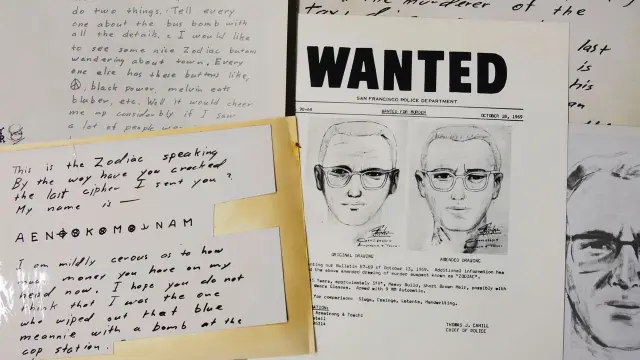 do two things. Tell every
one about the bus bomb with
all the details. 2 I would like
to see some nice Zodiac butons
wandering about town. Every
one else has these buttons like,
black power, melvin eats
bluber, etc. Well it would cheer
me up considerbly if I saw
a lot of people
This is the Zodiac speaking
By the way have you cracked
the last cipher I sent you?
My name is —
A E N ⊕ K M N A M
I am mildly cerous as to how
much money you have on my
head now. I hope you do not
think that I was the one
who wiped out that blue
meannie with a bomb at the
cop station.
the murderer of the
WANTED
SAN FRANCISCO POLICE DEPARTMENT
90-69
WANTED FOR MURDER
OCTOBER 18, 1969
ORIGINAL DRAWING
AMENDED DRAWING
our Bulletin 87-69 of October 13, 1969. Additional information has
the above amended drawing of murder suspect known as "ZODIAC".
Years, approximately 5'8", Heavy Build, Short Brown Hair, possibly with
Glasses. Armed with 9 MM Automatic.
for comparison: Slugs, Casings, Latents, Handwriting.
Armstrong & Toschi
THOMAS J. CAHILL
CHIEF OF POLICE
last
is
his